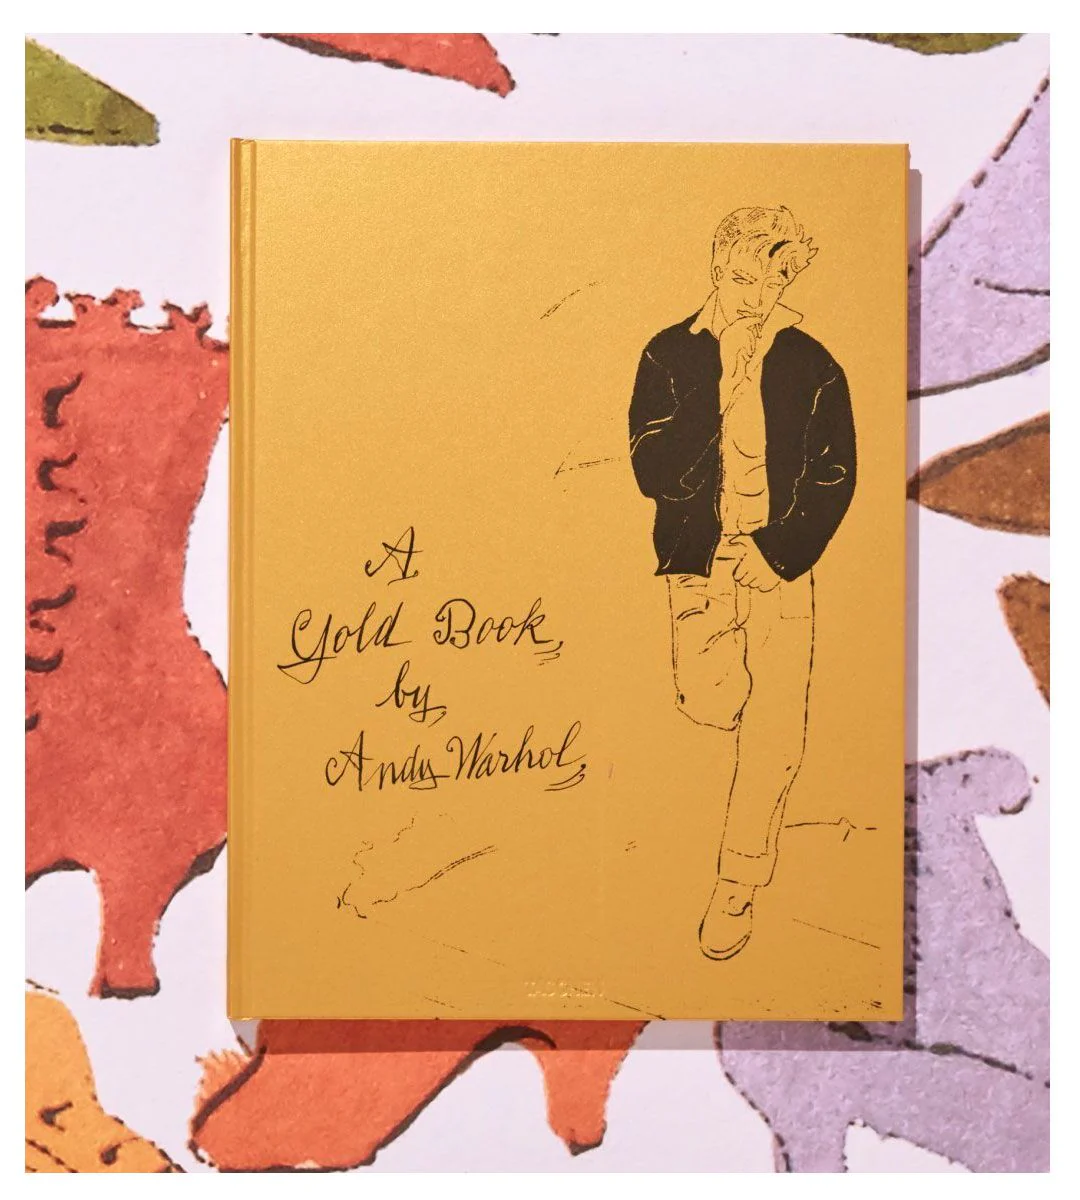 A
Gold Book
by
Andy Warhol
TASCHEN